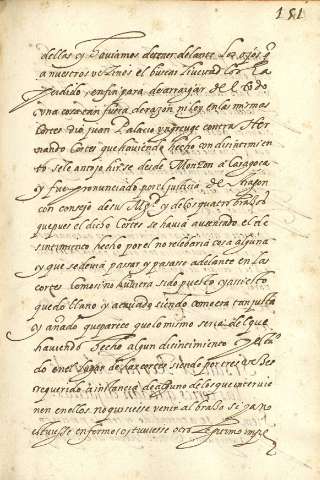 181
dellas y haviamos de tener delante los ojos q
a nuestros vezinos el buscar
perdido, en fin para desarraigar del todo
una cosa tan fuera de razon ni ley en las mismas
Cortes dio Juan Palacio un greuge contra Her
nando Cortes que haviendo hecho un disintimien
to se le antojo hirse desde Monçon a Caragoça
y fue pronunciado por el justicia de Aragon
con consejo de su Mg.d y de los quatro braços
que pues el dicho Cortes se havia ausentado el di
sintimiento hecho por el no relebaria cosa alguna
y que se devia pasar y pasasse adelante en las
cortes como si no huviera sido puesto y an si esto
quedo llano y acavado siendo como era tan justa
y añado que parece que lo mismo seria del que
haviendo hecho algun disintimiento
do en el lugar de las cortes siendo por tres vezes
requerido a instancia de alguno de los que intervie
nen en ellos no quisiesse venir al brasso si ya no
estuviesse enfermo o tuviesse otro legitimo impe